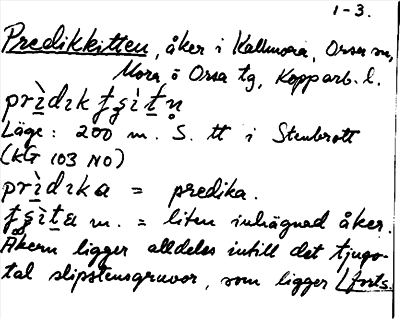 1-3.
Predikkitten, åker i Kallmora, Orsa sn,
Mora o Orsa tg, Kopparb. l.
Läge: 200 m. S. tt i Stenbrott
(KG 103 NO)
prìdɪka = predika.
m. = liten inhägnad åker.
Åkern ligger alldeles intill det tjugo-
tal slipstensgruvor, som ligger /forts.